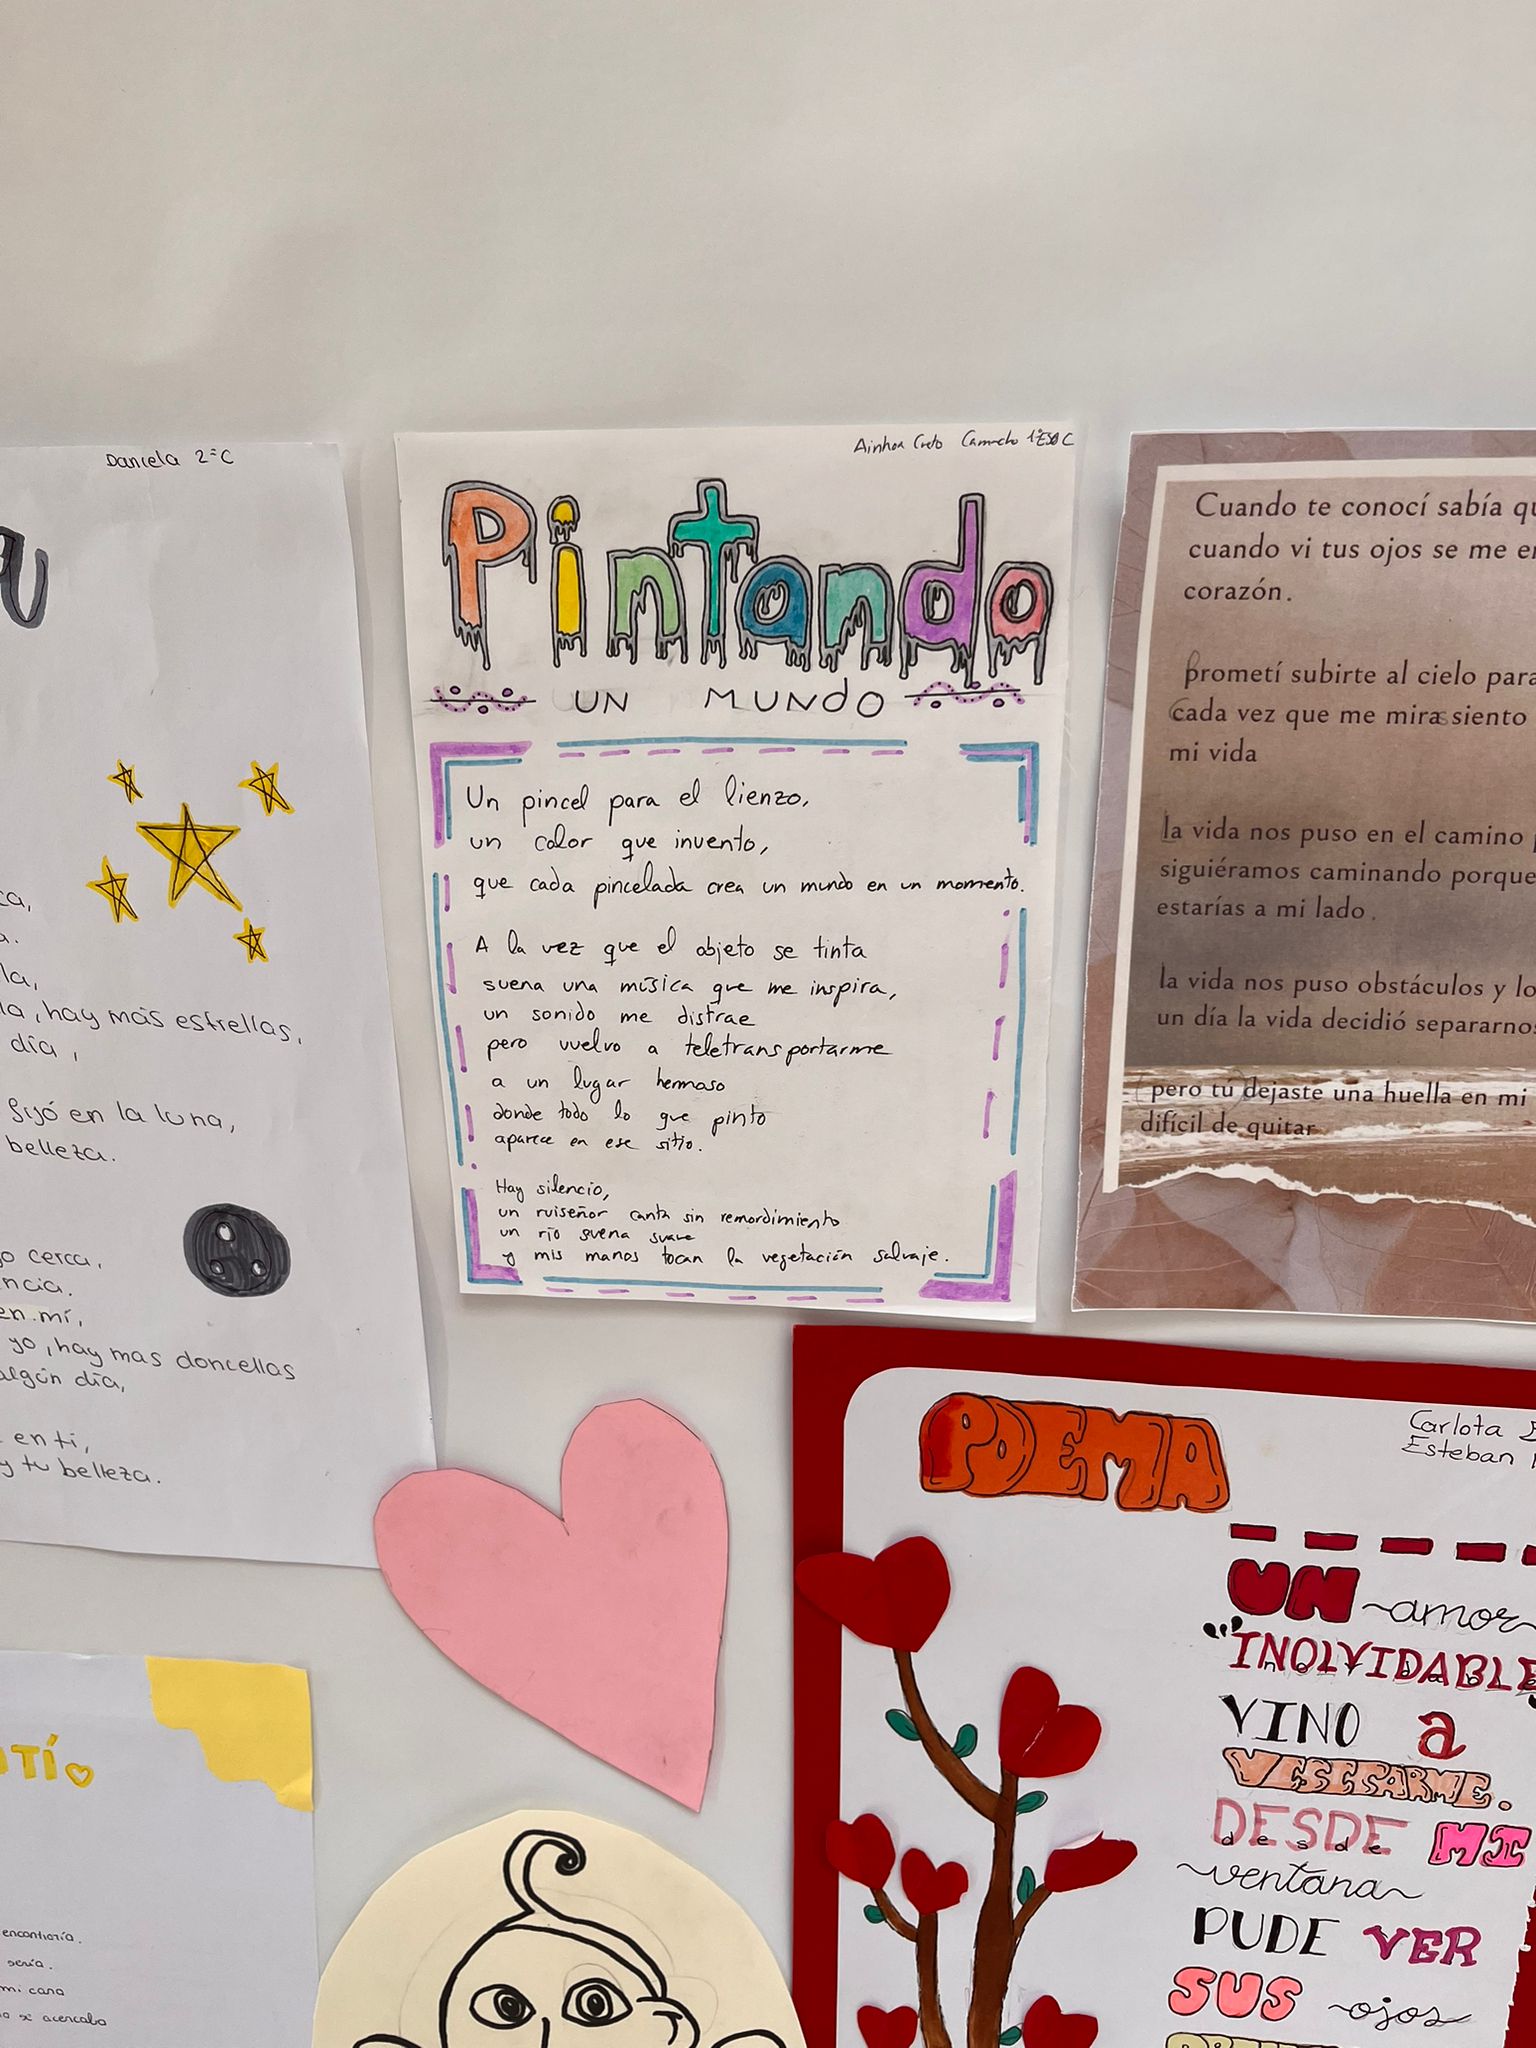 Daniela 2ºC
hay más estrellas,
día,
fijó en la luna,
belleza.
cerca,
en mí,
yo, hay mas doncellas
algún día,
en ti,
y tu belleza.
Ainhoa Cueto Camacho 1ºESO C
Pintando
UN MUNDO
Un pincel para el lienzo,
un color que invento,
que cada pincelada crea un mundo en un momento.
A la vez que el objeto se tinta
suena una música que me inspira,
un sonido me distrae
pero vuelvo a teletransportarme
a un lugar hermoso
donde todo lo que pinto
aparece en ese sitio.
Hay silencio,
un ruiseñor canta sin remordimiento
un río suena suave
y mis manos tocan la vegetación salvaje.
Cuando te conocí sabía
cuando vi tus ojos se me
corazón.
prometí subirte al cielo para
cada vez que me mira siento
mi vida
la vida nos puso en el camino
siguiéramos caminando porque
estarías a mi lado.
la vida nos puso obstáculos y
un día la vida decidió
pero tú dejaste una huella en mi
difícil de quitar
POEMA
Carlota
Esteban
UN amor
"INOLVIDABLE
VINO a
VISITARME.
DESDE MI
desde
ventana
PUDE VER
SUS ojos
encontraría.
sería.
mi cara
acercaba